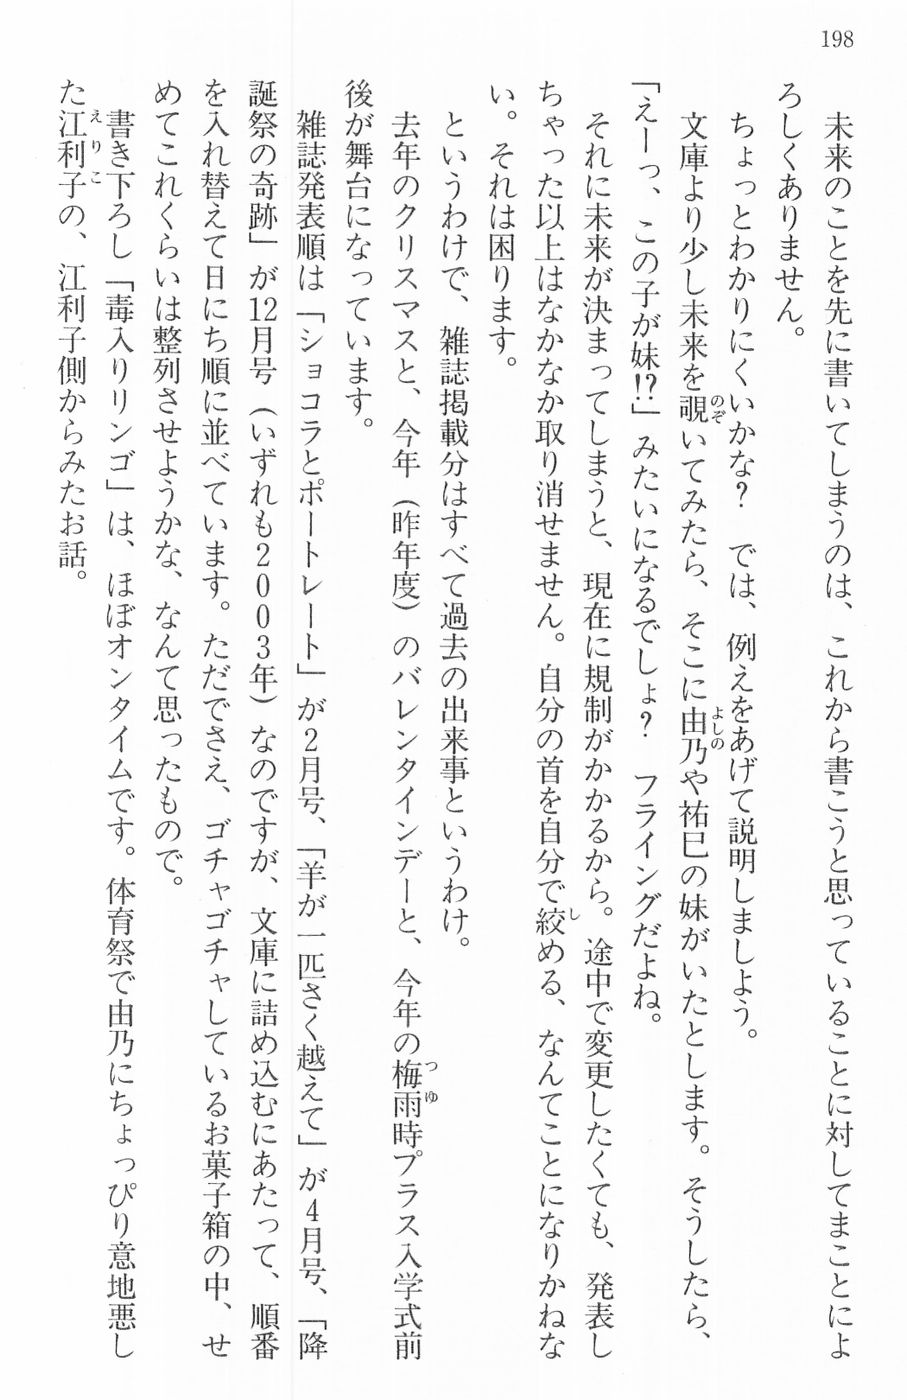 198
　未来のことを先に書いてしまうのは、これから書こうと思っていることに対してまことによ
ろしくありません。
　ちょっとわかりにくいかな？　では、例えをあげて説明しましよう。
　文庫より少し未来を覗いてみたら、そこに由乃や祐巳の妹がいたとします。そうしたら、
「えーっ、この子が妹!?」みたいになるでしょ？　フライングだよね。
　それに未来が決まってしまうと、現在に規制がかかるから。途中で変更したくても、発表し
ちゃった以上はなかなか取り消せません。自分の首を自分で絞める、なんてことになりかねな
い。それは困ります。
　というわけで、雑誌掲載分はすべて過去の出来事というわけ。
　去年のクリスマスと、今年（昨年度）のバレンタインデーと、今年の梅雨時プラス入学式前
後が舞台になっています。
　雑誌発表順は「ショコラとポートレート」が2月号、「羊が一匹さく越えて」が4月号、「降
誕祭の奇跡」が12月号（いずれも2003年）なのですが、文庫に詰め込むにあたって、順番
を入れ替えて日にち順に並べています。ただでさえ、ゴチャゴチャしているお菓子箱の中、せ
めてこれくらいは整列させようかな、なんて思ったもので。
　書き下ろし「毒入りリンゴ」は、ほぼオンタイムです。体育祭で由乃にちょっぴり意地悪し
た江利子の、江利子側からみたお話。